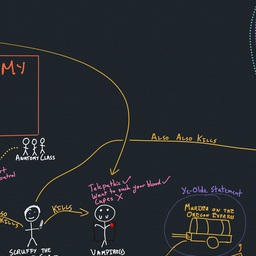 MY
Anatomy Class
Also Also Kills
Telepathic ✓
Want to suck your blood ✓
Capes ✗
Ye-Olde Statement
Murder on the
Oregon Express
Kills
Scruffy the
Vampire(s)